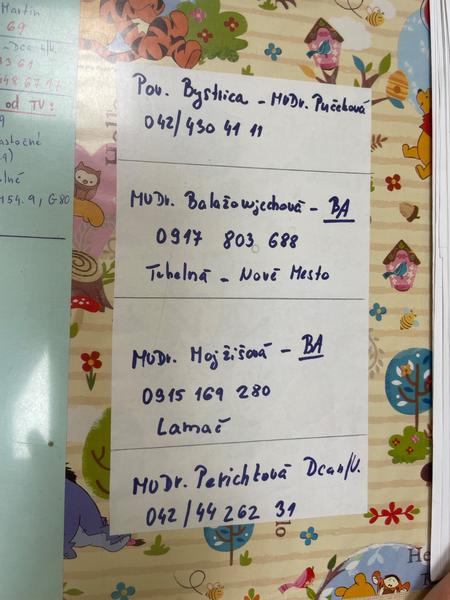 Martin
69
33 61
48 67 17
od TV:
9
)
M54.9, G80
Pov. Bystrica - MUDr. Pučeková
042/430 41 11
MUDr. Balažovjechová - BA
0917 803 688
Tehelná - Nové Mesto
MUDr. Mojžišová - BA
0915 169 280
Lamač
MUDr. Petrichtová Dcan/V.
042/44 262 31
lo
He